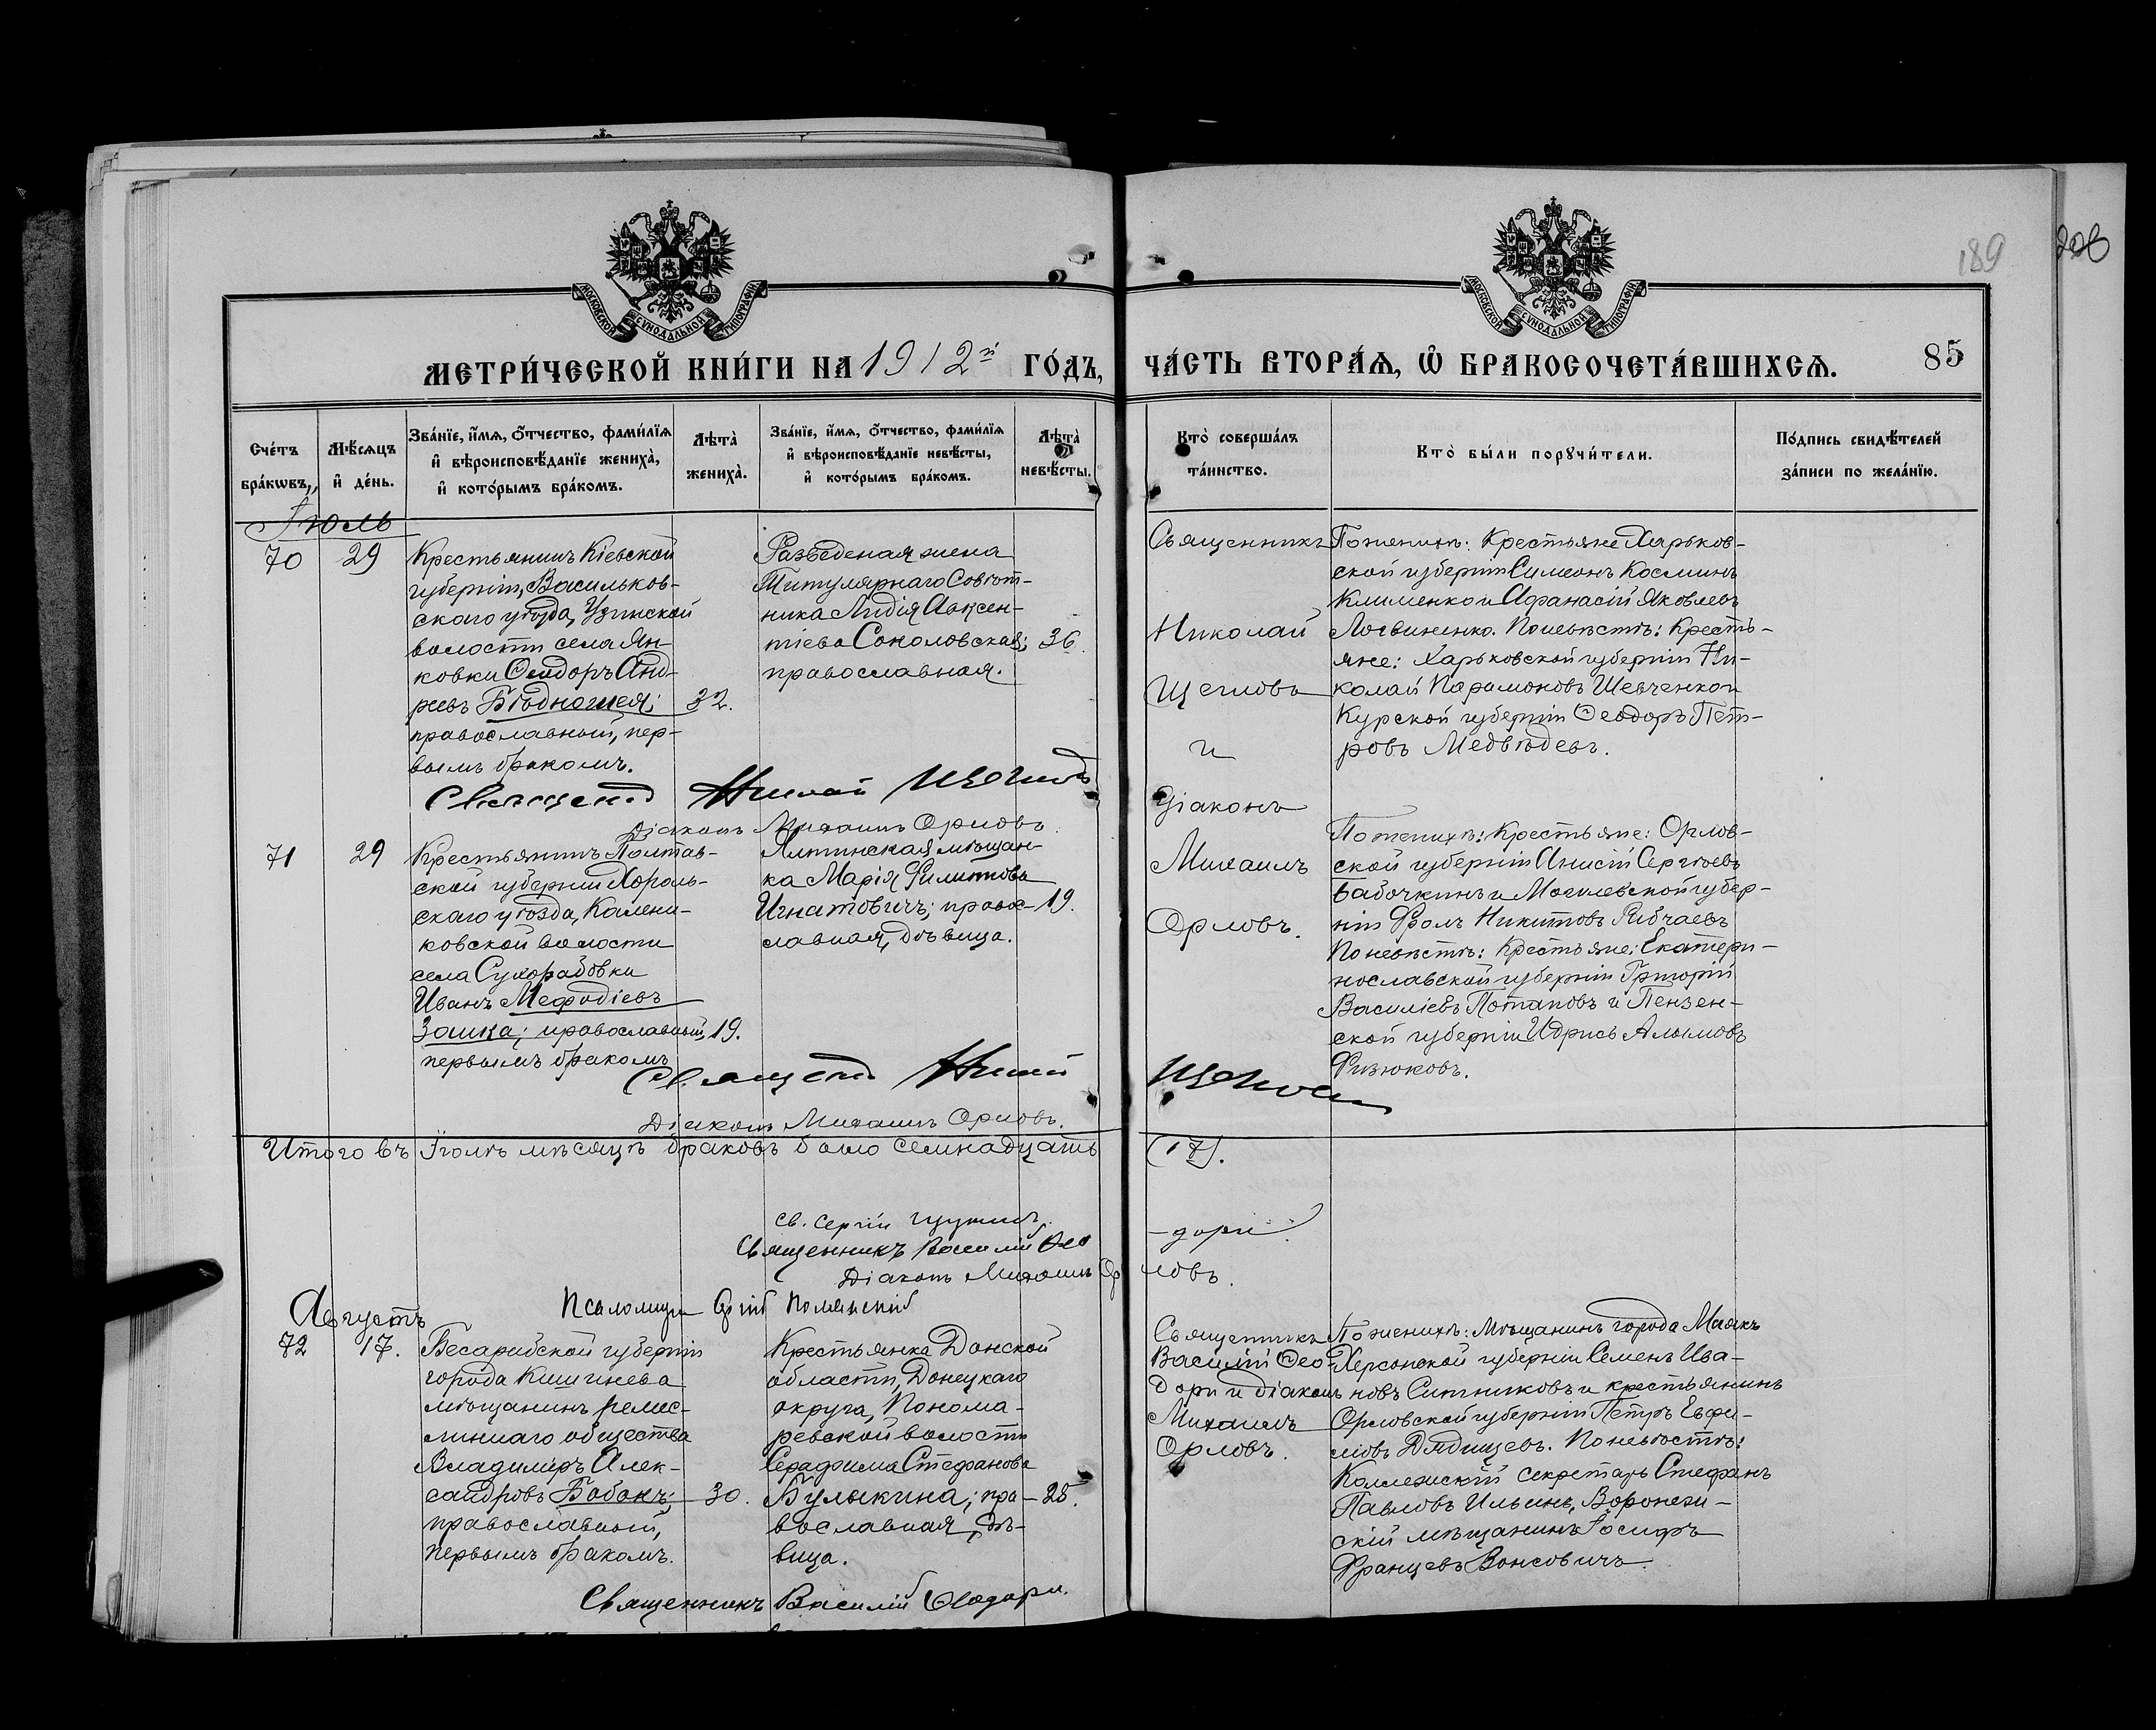 189
208
МОСКОВСКОЙ СѴНОДАЛЬНОЙ ТИПОГРАФІИ
МОСКОВСКОЙ СѴНОДАЛЬНОЙ ТИПОГРАФІИ
МЕТРИ́ЧЕСКОЙ КНИ́ГИ НА 1912й ГО́ДЪ,
ЧА́СТЬ ВТОРА́Ѧ, Ѽ БРАКОСОЧЕТА́ВШИХСѦ.
85
Сче́тъ
бра́кѡвъ,
Мѣ́сѧцъ
и҆ де́нь.
Зва́нїе, и҆́мѧ, ѻ҆́тчество, фами́лїѧ
и҆ вѣроисповѣ́данїе жениха̀,
и҆ кото́рымъ бра́комъ.
Лѣ́та
жениха̀.
Зва́нїе, и҆́мѧ, ѻ҆́тчество, фами́лїѧ
и҆ вѣроисповѣ́данїе невѣ́сты,
и҆ кото́рымъ бра́комъ.
Лѣ́та
невѣ́сты.
Кто̀ соверша́лъ
та́инство.
Кто̀ бы́ли порꙋчи́тели.
По́дпись свидѣ́телей
за́писи по жела́нїю.
Іюль
70
29
Крестьянинъ Кіевской
губерніи, Васильков-
скаго уѣзда, Узинской
волости села Ян-
ковки Ѳеодоръ Анд-
реевъ Бѣдношея;
православный, пер-
вымъ бракомъ.
32.
Разведеная жена
Титулярнаго Совѣт-
ника Лидія Авксен-
тіева Соколовская;
православная.
36.
Священникъ
Николай
Щегловъ
и
Діаконъ
Михаилъ
Орловъ.
По женихѣ: Крестьяне Харьков-
ской губерніи Симеонъ Косминъ
Клименко и Афанасій Яковлевъ
Логвиненко. По невѣстѣ: Кресть-
яне: Харьковской губерніи Ни-
колай Парамоновъ Шевченко и
Курской губерніи Ѳеодоръ Пет-
ровъ Медвѣдевъ.
Священникъ Николай Щегловъ
Діаконъ Михаилъ Орловъ.
71
29
Крестьянинъ Полтав-
ской губерніи Хороль-
скаго уѣзда, Камени-
ковской волости
села Сухорабовки
Иванъ Мефодіевъ
Заика; православный,
первымъ бракомъ
19.
Ялтинская мѣщан-
ка Марія Филиппова
Игнатовичъ; правос-
лавная, дѣвица.
19.
По женихѣ: Крестьяне: Орлов-
ской губерніи Анисій Сергѣевъ
Бабочкинъ и Могилевской губер-
ніи Фролъ Никитовъ
По невѣстѣ: Крестьяне: Екатери-
нославской губерніи Григорій
Василіевъ Потаповъ и Пензен-
ской губерніи Идрисъ Алымовъ
Физюковъ.
Священникъ Николай Щегловъ
Діаконъ Михаилъ Орловъ.
Итого въ Іюлѣ мѣсяцѣ браковъ было семнадцать (17).
Св. Сергій Щукинъ.
Священникъ Василій Ѳео-дори.
Діаконъ Михаилъ Орловъ.
Псаломщикъ Полянскій
Августъ
72
17.
Бесарабской губерніи
города Кишинева
мѣщанинъ ремес-
леннаго общества
Владиміръ Алек-
сандровъ Бабакъ;
православный,
первымъ бракомъ.
30.
Крестьянка Донской
области, Донецкаго
округа, Понома-
ревской волости
Серафима Стефанова
Булыкина; пра-
вославная, дѣ-
вица.
28.
Священникъ
Василій Ѳео-
дори и діаконъ
Михаилъ
Орловъ.
По женихѣ: Мѣщанинъ города Маякъ
Херсонской губерніи Семенъ Ива-
новъ Ситниковъ и крестьянинъ
Орловской губерніи Петръ Евфи-
мовъ Дядищевъ. По невѣстѣ:
Коллежскій секретарь Стефанъ
Павловъ Ильинъ, Воронеж-
скій мѣщанинъ Іосифъ
Францевъ Вонсовичъ.
Священникъ Василій Ѳеодори.